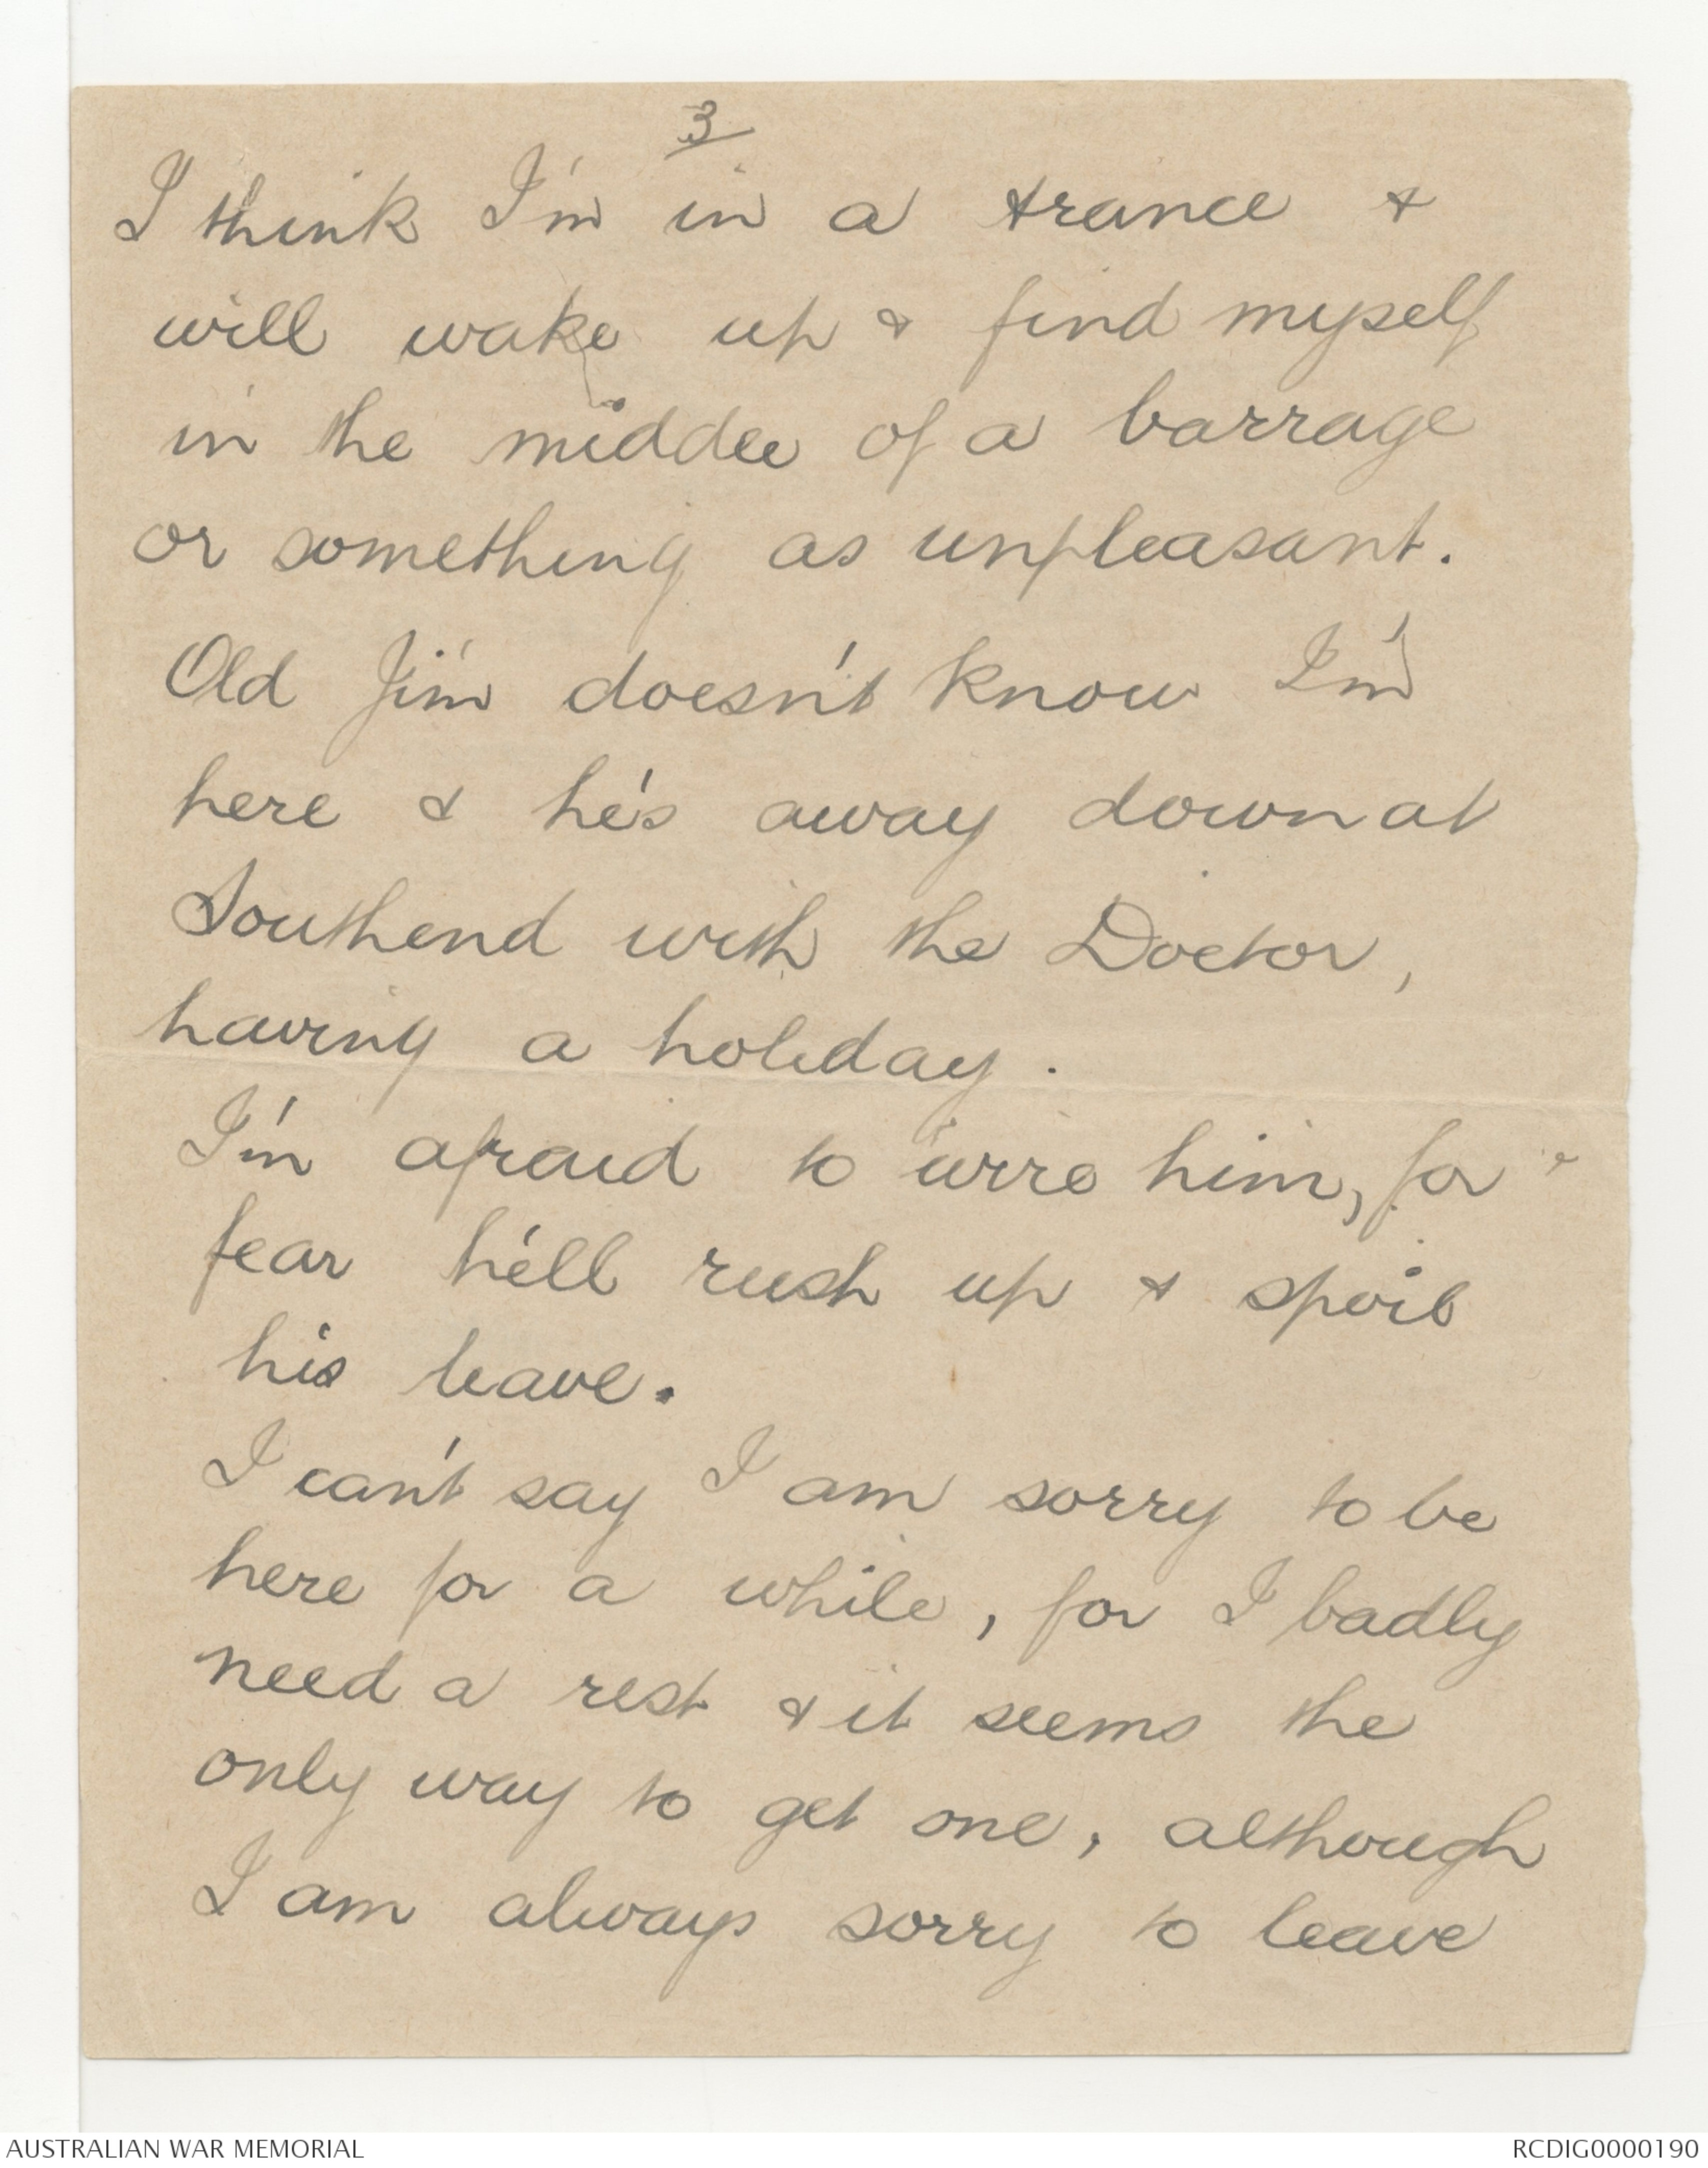 3
I think I'm in a trance &
will wake up & find myself
in the middle of a barrage
or something as unpleasant.
Old Jim doesn't know I'm
here & he's away down at
Southend with the Doctor,
having a holiday.
I'm afraid to wire him, for
fear he'll rush up & spoil
his leave.
I can't say I am sorry to be
here for a while, for I badly
need a rest & it seems the
only way to get one, although
I am always sorry to leave
AUSTRALIAN WAR MEMORIAL
RCDIG0000190